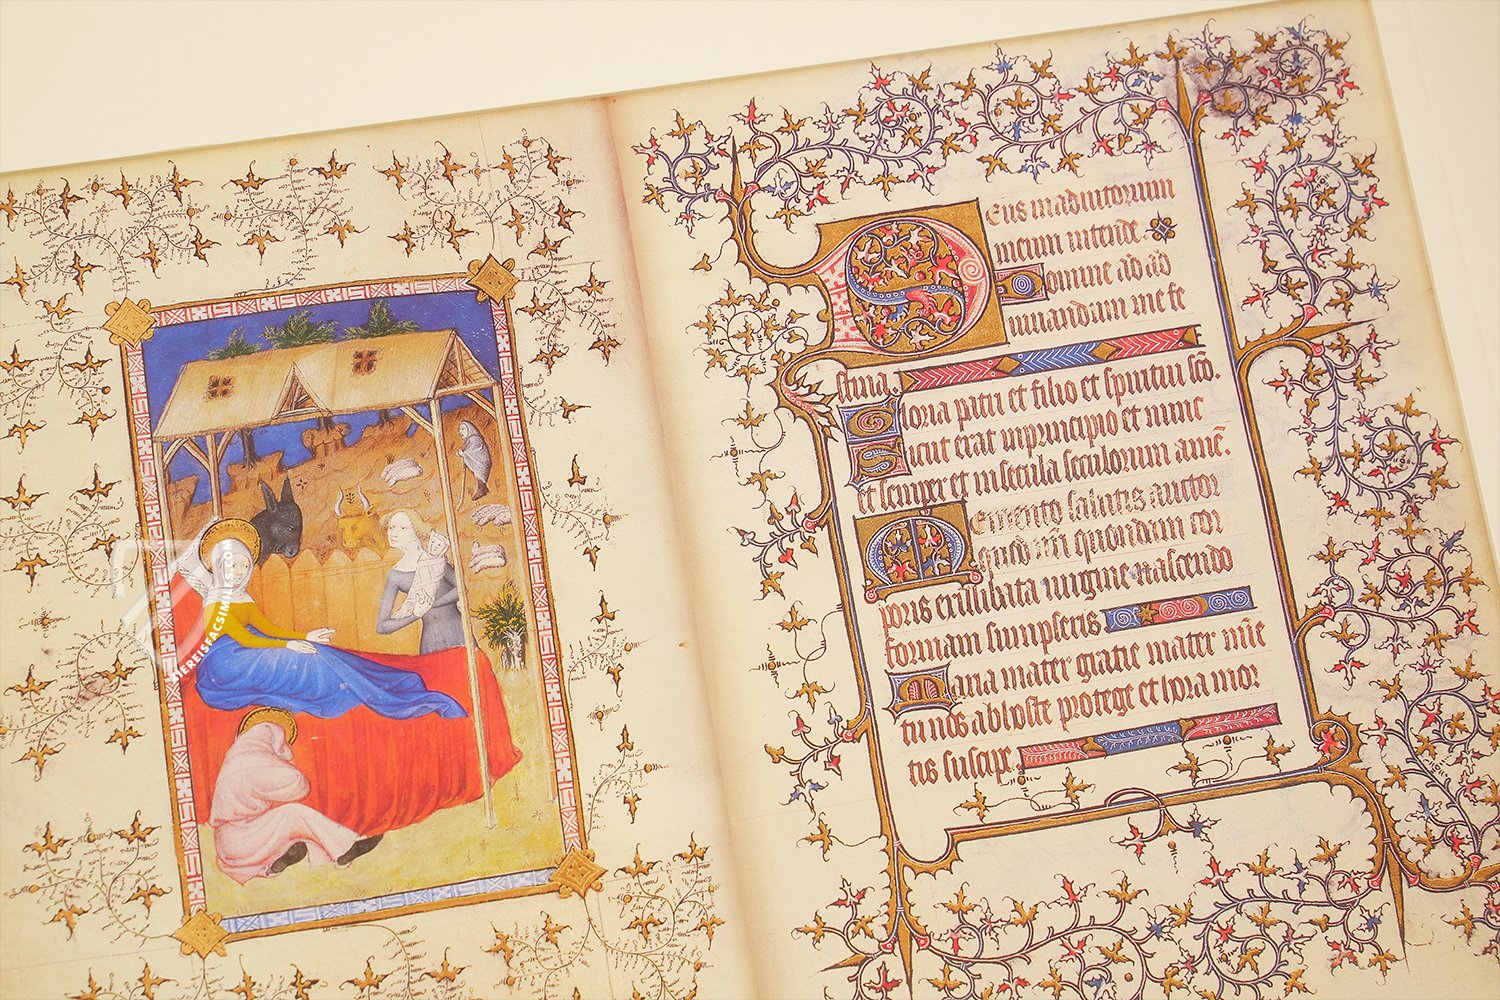 Deus in adiutorium
meum intende.
Domine ad ad
iuuandum me fe
stina.
Gloria patri et filio et spiritui sco.
Sicut erat in principio et nunc
et semper et in secula seculorum ame.
Memento salutis auctor
quod nri quondam cor
poris ex illibata uirgine nascendo
formam sumpseris
Maria mater gratie mater mie
tu nos ab hoste protege et hora mor
tis suscipe.
ZIEREISFACSIMILES.COM